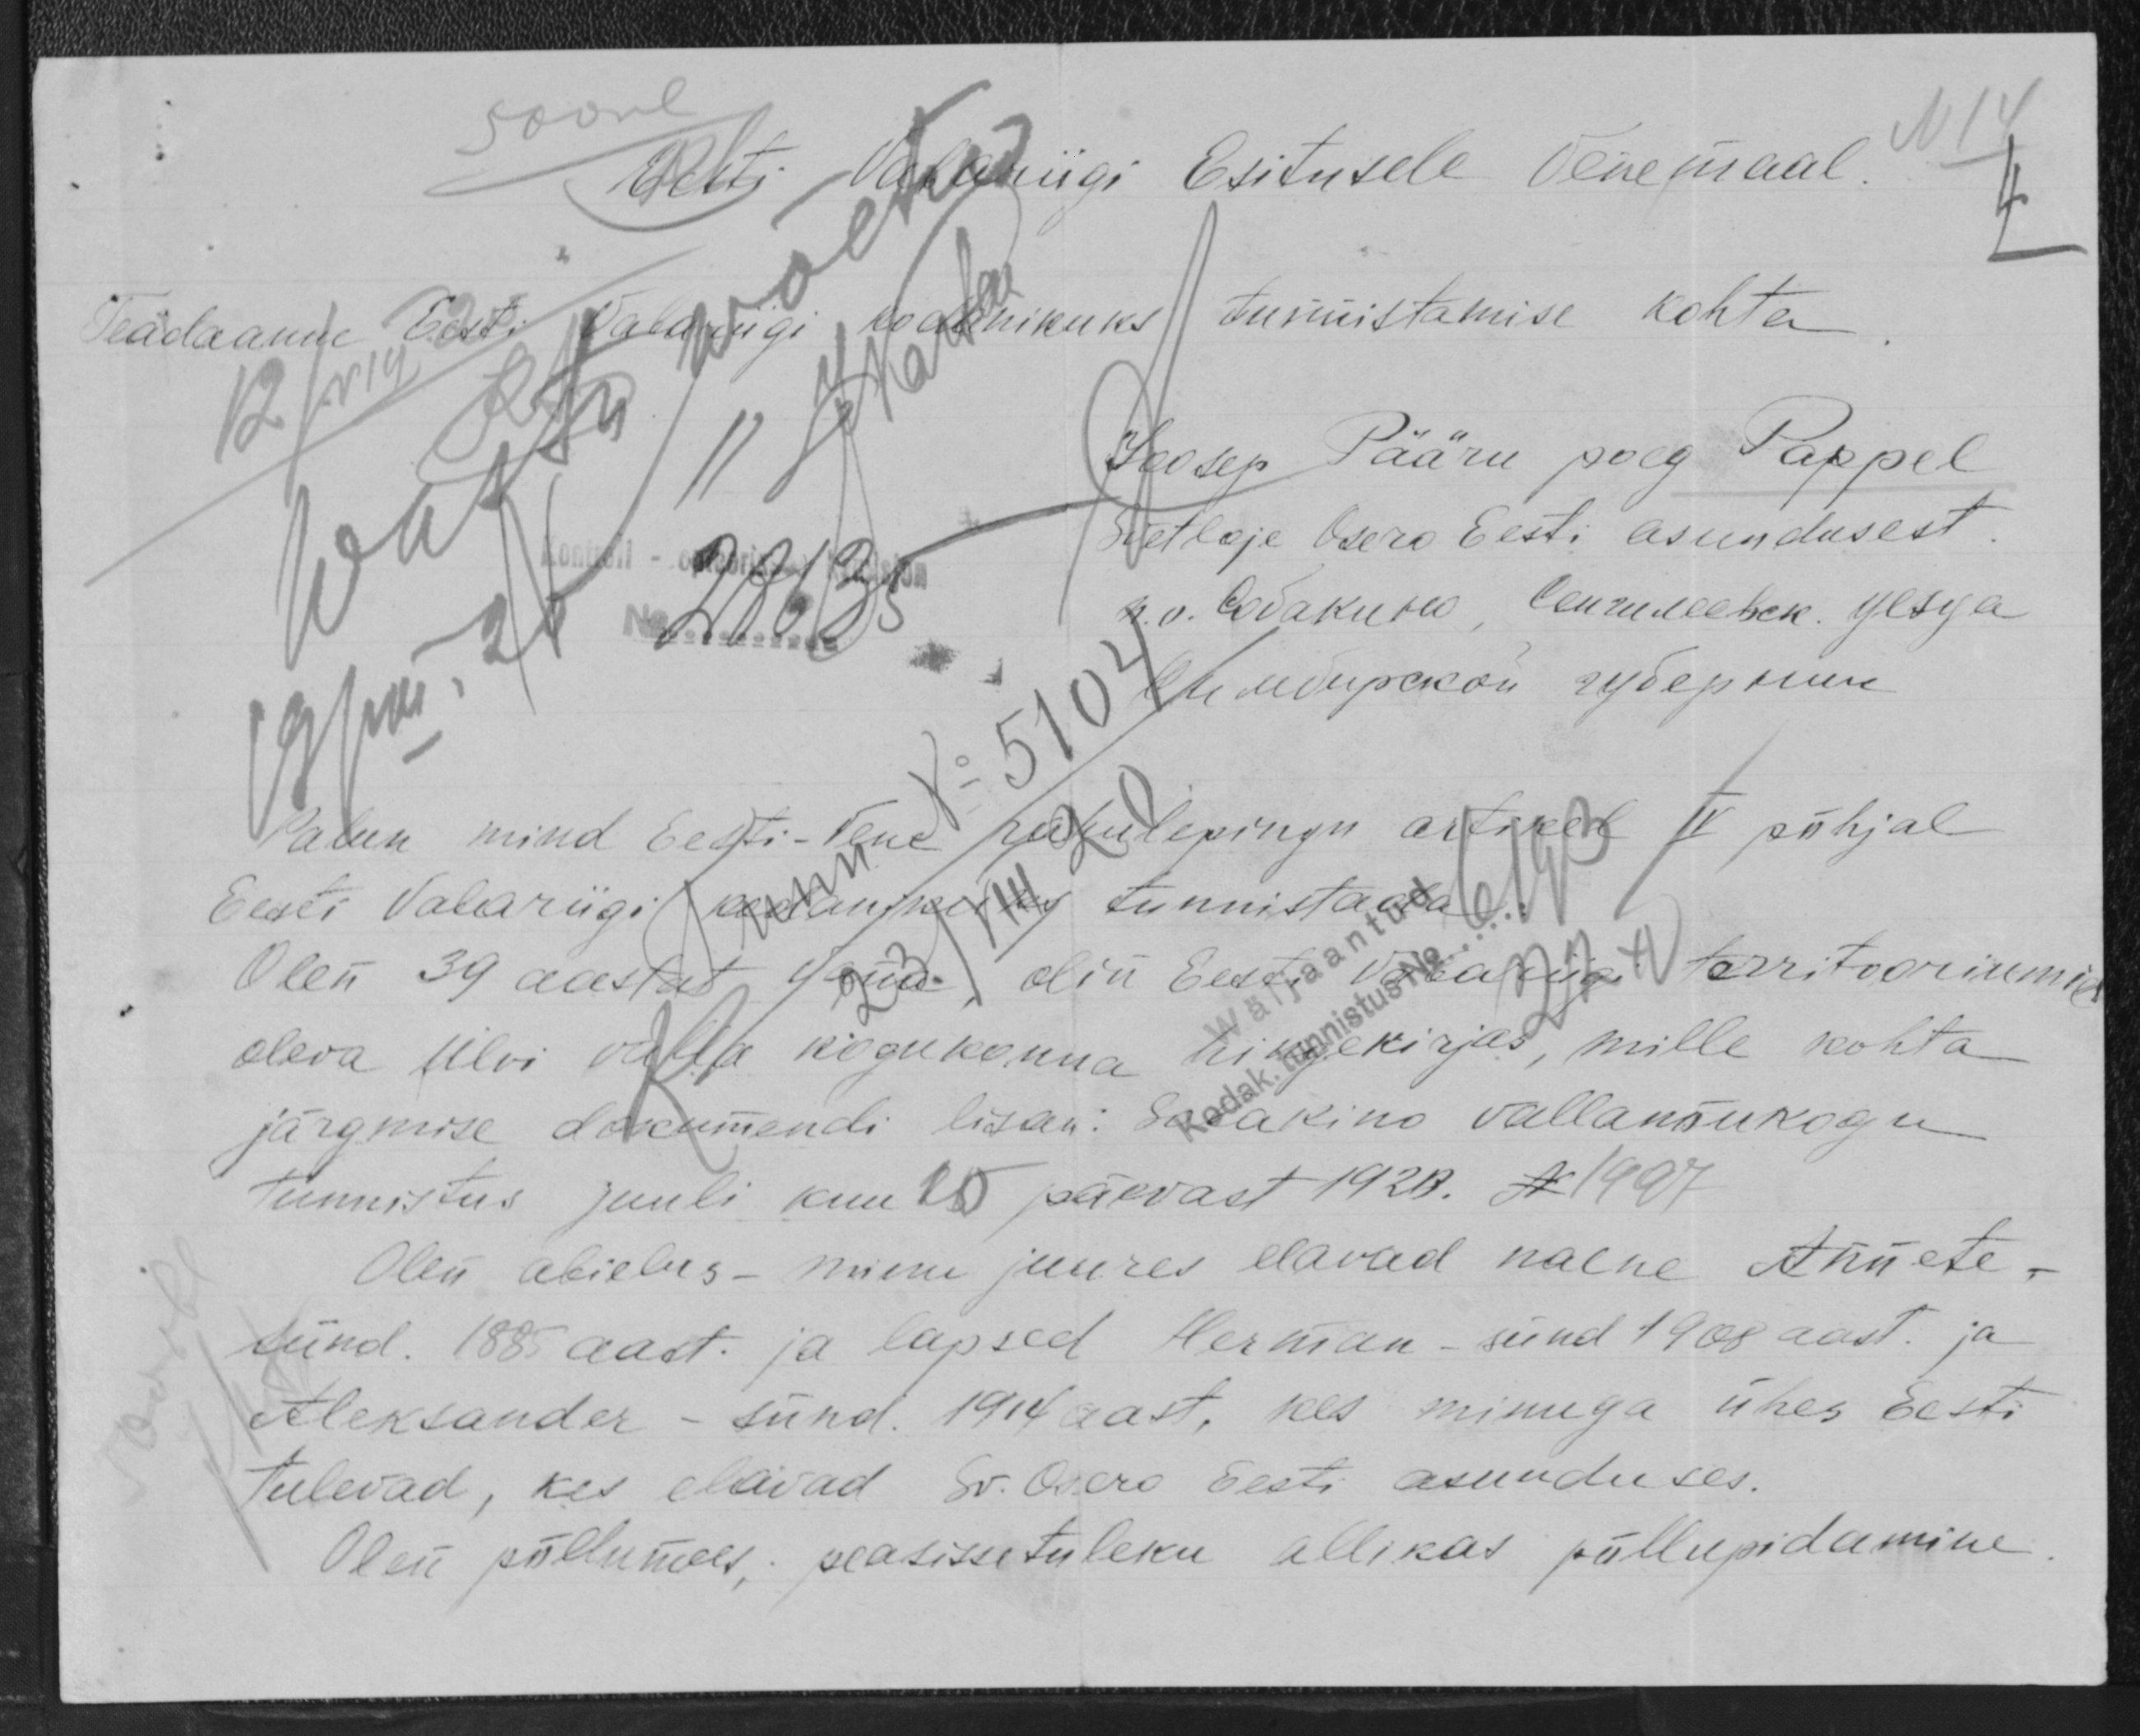 500 rbl
Eesti Vabariigi Esitusele Venemaal.
N 14
4
Teadaanne Eesti Vabariigi kodanikuks tunnistamise kohta.
12/VIII 20
Wastu wõetud
19/VIII. 20
Kontroll - opteerimise komisjon
No 2863
Joosep Pääru poeg Pappel
Svetloje Osero Eesti asundusest.
п.о. Собакино, Сенгилеевск. уезда
Симбирской губернии
Tunn № 5104
23/VIII 20
Palun mind Eesti-Vene rahulepingu artikel IV põhjal
Eesti Vabariigi kodanikuks tunnistada.
Wäljaantud
Kodak. tunnistus No 6193
Olen 39 aastat vana, olin Eesti Vabariigi territooriumil
oleva Ulvi valla kogukonna hingekirjas, mille kohta
järgmise dokumendi lisan: Sobakino vallanõukogu
tunnistus juuli kuu 25 päevast 1920. № 1997
Olen abielus - minu juures elavad naene Annete -
sünd. 1885 aast. ja lapsed Herman - sünd 1908 aast. ja
Aleksander - sünd. 1914 aast, kes minuga ühes Eesti
tulevad, kes elavad Sv. Osero Eesti asunduses.
Olen põllumees, peasissetuleku allikas põllupidamine.